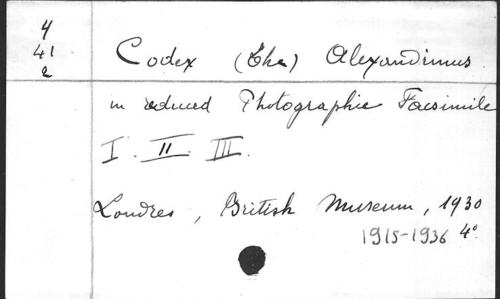 4
41
2
Codex (The) Alexandrinus
in reduced Photographic Facsimile
I. II. III.
Londres, British Museum, 1930
1915-1936 4°